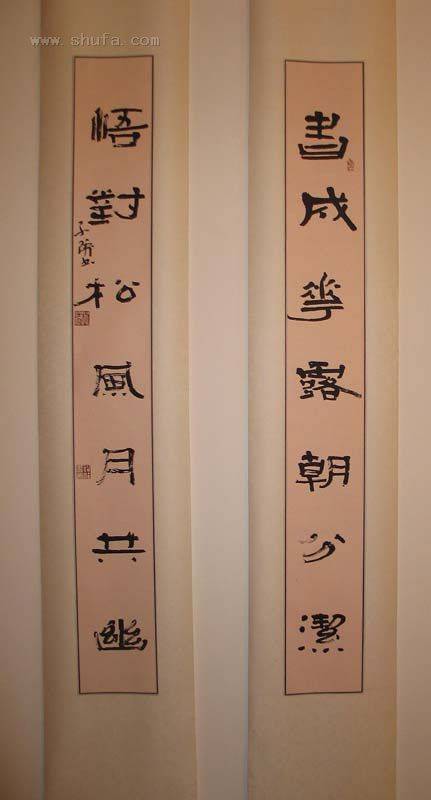 www.shufa.com
書成花露朝分潔
悟對松風月共幽